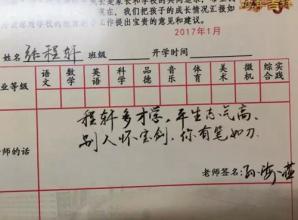 在，我们把孩子的成长情况汇报如
工作提出宝贵的意见和建议。
2017年1月
姓名 张程轩 班级 开学时间
语文 数学 英语 科学 品德 音乐 体育 美术 微机 综合实践
业等级
程轩多才学，平生志气高，
别人怀宝剑，你有笔如刀。
师的话
老师签名：孙海燕